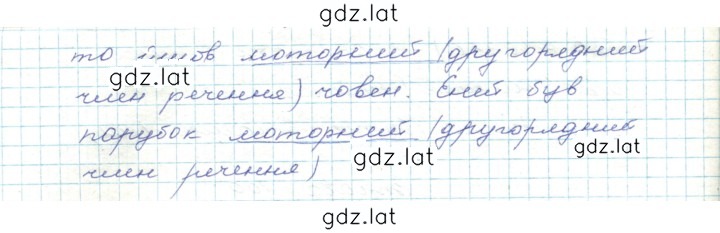 gdz.lat
то йшов моторний (другорядний
gdz.lat
член речення) човен. Еней був
парубок моторний (другорядний
gdz.lat
gdz.lat
член речення)
gdz.lat